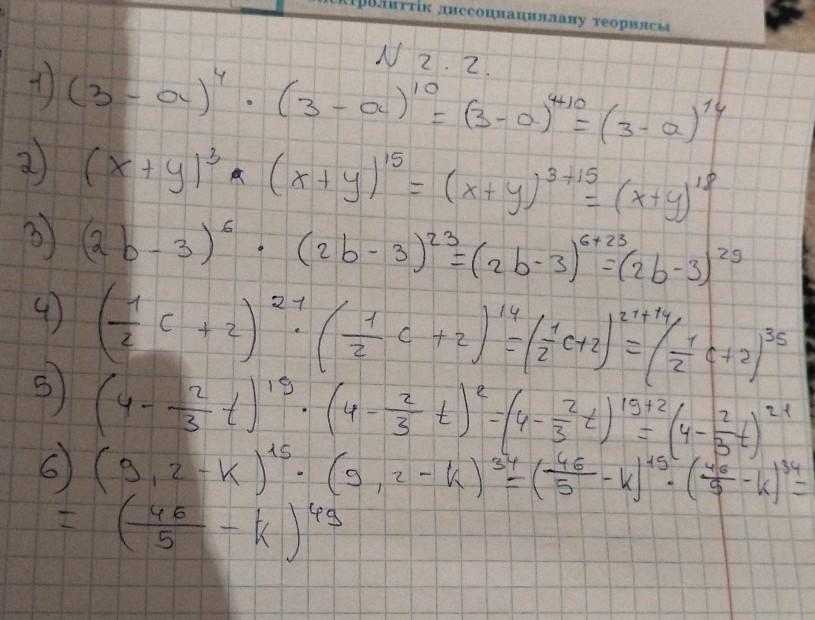 Электролиттік диссоциациялану теориясы
N 2.2.
1) (3 - a)^4 · (3 - a)^10 = (3 - a)^4+10 = (3 - a)^14
2) (x + y)^3 · (x + y)^15 = (x + y)^3+15 = (x + y)^18
3) (2b - 3)^6 · (2b - 3)^23 = (2b - 3)^6+23 = (2b - 3)^29
4) (1/2 c + 2)^21 · (1/2 c + 2)^14 = (1/2 c + 2)^21+14 = (1/2 c + 2)^35
5) (4 - 2/3 t)^19 · (4 - 2/3 t)^2 = (4 - 2/3 t)^19+2 = (4 - 2/3 t)^21
6) (9,2 - k)^15 · (9,2 - k)^34 = (46/5 - k)^15 · (46/5 - k)^34 =
= (46/5 - k)^49